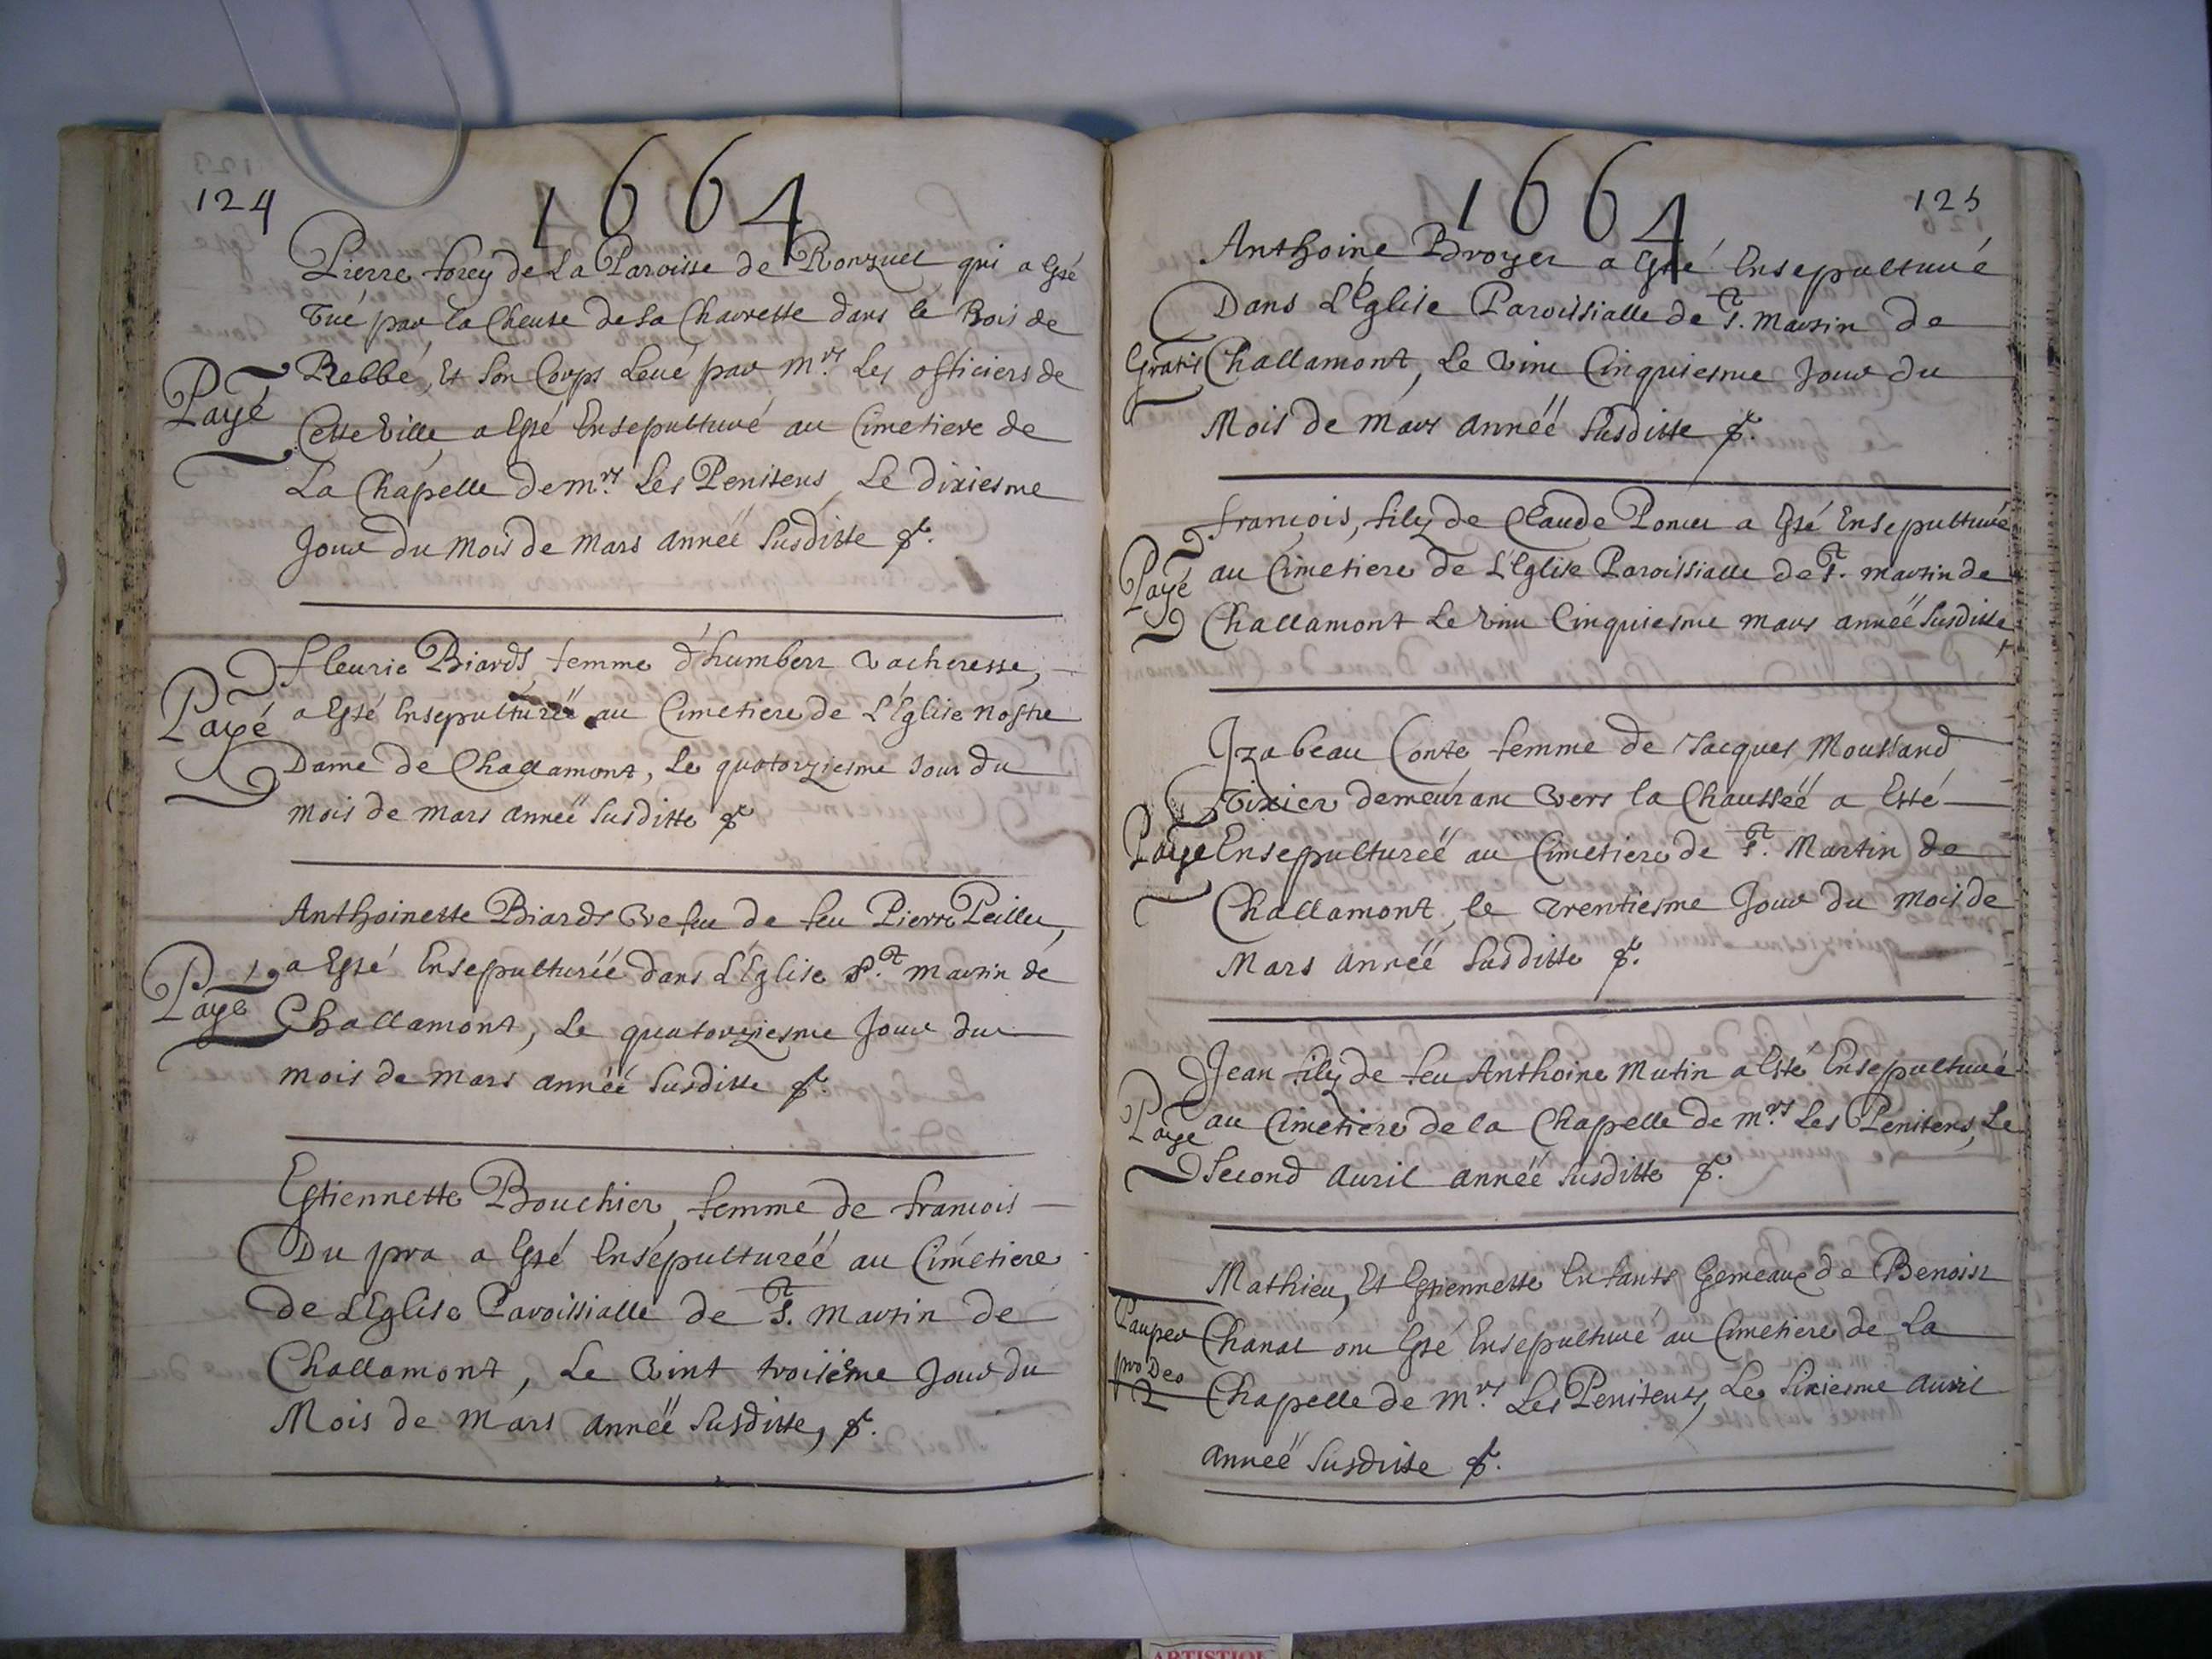 124
1664
Pierre forey de La Paroisse de Ronzuel qui a Esté
Tué par la Cheute de sa Charrette dans le Bois de
Rebbé, Et Son Corps Levé par Mrs. Les officiers de
Payé
Cette Ville, a Esté Ensepulturé au Cimetiere de
La Chapelle de mrs. Les Penitens Le dixiesme
Jour du Mois de Mars année Susditte
Fleurie Biards, femme d'humbert Vacheresse,
Payé
a Esté Ensepulturéé au Cimetiere de L'Eglise Nostre
Dame de Challamont, Le quatorziesme Jour du
Mois de Mars année Susditte
Anthoinette Biards Vefue de feu Pierre Peilleu,
Payé
a Esté Ensepulturéé dans L'Eglise St. Martin de
Challamont, Le quatorziesme Jour du
Mois de Mars année Susditte
Estiennette Bouchier, femme de francois
Du pra a Esté Ensepulturéé au Cimetiere
de L'Eglise Paroissialle de St. Martin de
Challamont, Le Vint troisiéme Jour du
Mois de Mars année Susditte,
1664
125
Anthoine Broyer a Esté Ensepulturé
Dans L'Eglise Paroissialle de St. Martin de
Gratis
Challamont, Le Vint Cinquiesme Jour du
Mois de Mars année Susditte
françois, fils de Claude Poncet a Esté Ensepulturé
Payé
au Cimetiere de L'Eglise Paroissialle de St. Martin de
Challamont Le Vint Cinquiesme Mars année Susditte
Izabeau Conte femme de Jacques Moussand
Tixier demeurant Vers la Chausséé a Esté
Payé
Ensepulturéé au Cimetiere de St. Martin de
Challamont, le Trentiesme Jour du Mois de
Mars année Susditte
Jean fils de feu Anthoine Mutin a Esté Ensepulturé
Payé
au Cimetiere de la Chapelle de Mrs. Les Penitens, Le
Second Auril année Susditte
Mathieu, Et Estiennette Enfants Gemeaux de Benoist
Pauper
Chanal ont Esté Ensepulturé au Cimetiere de La
pro Deo
2
Chapelle de Mrs. Les Penitents, Le Sixiesme Auril
année Susditte